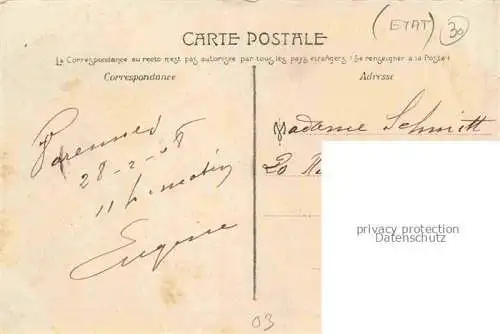 (ETAT) 30
CARTE POSTALE
La Correspondance au recto n'est pas autorisée par tous les pays étrangers (Se renseigner à la Poste)
Correspondance
Adresse
Varennes
28-2-08
11 h. matin
Eugène
Madame Schmitt
20 R
privacy protection
Datenschutz
03